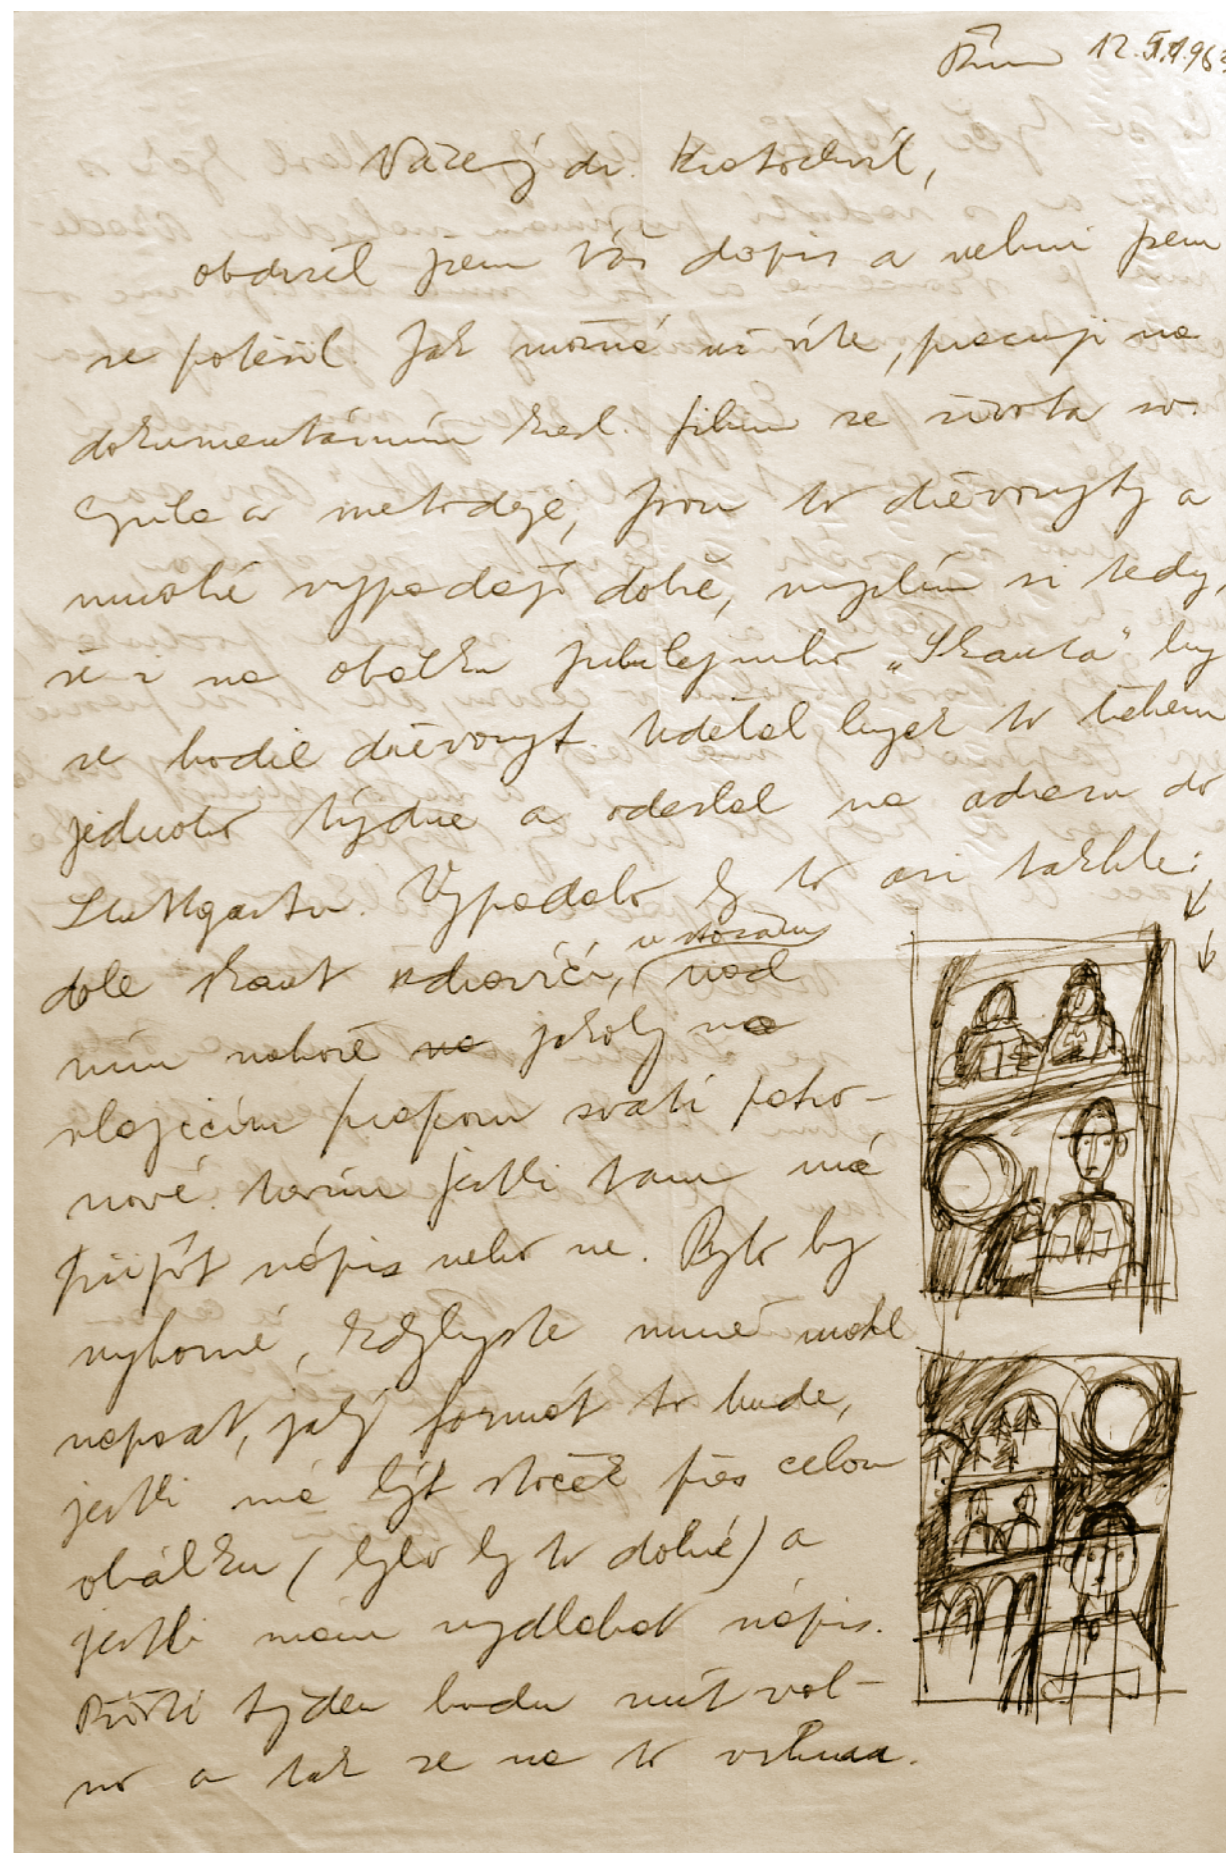 Řím 12.
Vážený dr. Kratochvíl,
obdržel jsem Váš dopis a velmi jsem
se potěšil Jak možná už víte, pracuji na
dokumentárním kresl. filmu ze života sv.
Cyrila a metoděje, jsou to dřevoryty a
mnohé vypadají dobře, myslím si tedy,
že i na obálku jubilejního „Skauta" by
se hodil dřevoryt. Udělal bych to během
jednoho týdne a odeslal na adresu do
Stuttgartu. Vypadalo by to asi takhle:
dole skaut u stožáru nad
ním nahoře na jakoby na
vlajícím praporu svatí patro-
nové. nevím jestli tam má
přijít nápis nebo ne. Bylo by
výborné, kdybyste mně mohl
napsat, jaký formát to bude,
jestli má být štoček přes celou
obálku (bylo by to dobré) a
jestli mám vydlabat nápis.
Příští týden budu mít vol-
no a tak se na to vrhnu.